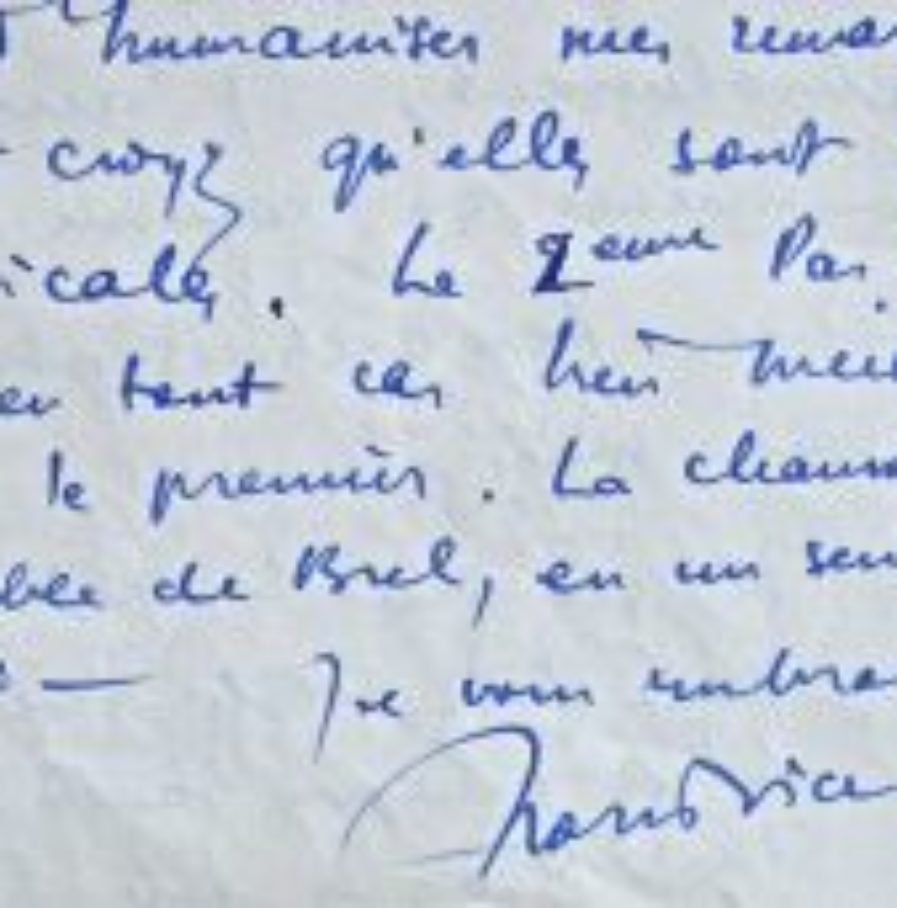 humaniser mes remar
croyez qu'elles sont
icales. Le 2eme Pas.
en tout cas bien meil
le premier. La chanso
ble de Brel, en un sen
— Je vous embras